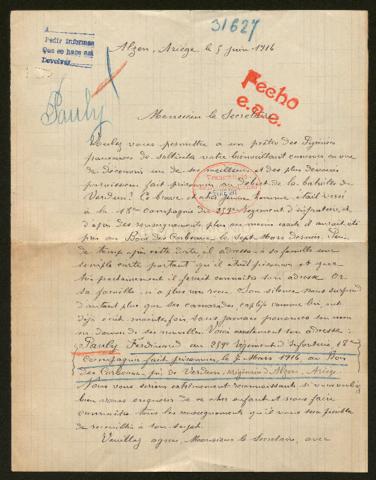 31627
A
Pedir informes
Que se hace así
Devolver
Alzen, Ariège, le 5 juin 1916
Pauly
Fecho
e.a.e.
Monsieur le Secrétaire
Voulez vous permettre à un prêtre des Pyrénées
de solliciter votre bienveillant concours en vue
de découvrir un de ses meilleurs et des plus dévoués
paroissiens fait prisonnier au début de la bataille de
Verdun? Ce brave et cher jeune homme était versé
à la 18me compagnie du 259e Régiment d'infanterie, et
d'après des renseignements plus ou moins exacts il aurait été
pris au Bois des Corbeaux, le sept Mars dernier. Peu
de temps après cette date, il adressa à sa famille une
simple carte portant qu'il était prisonnier et que
très prochainement il ferait connaître son adresse. Or
sa famille n'a plus rien reçu. Son silence nous surprend
d'autant plus que ses camarades captifs comme lui ont
déjà écrit maintes fois sans jamais prononcer son nom
ni donner de ses nouvelles. Voici exactement son adresse:
Pauly Ferdinand au 259e Régiment d'Infanterie, 18me
Compagnie fait prisonnier, le 7 Mars 1916 au Bois
des Corbeaux, près de Verdun, originaire d'Alzen, Ariège.
Nous vous serions extrêmement reconnaissants si vous vouliez
bien vous enquérir de ce cher enfant et nous faire
connaître tous les renseignements qu'il vous sera possible
de recueillir à son sujet.
Veuillez agréer, Monsieur le Secrétaire, avec